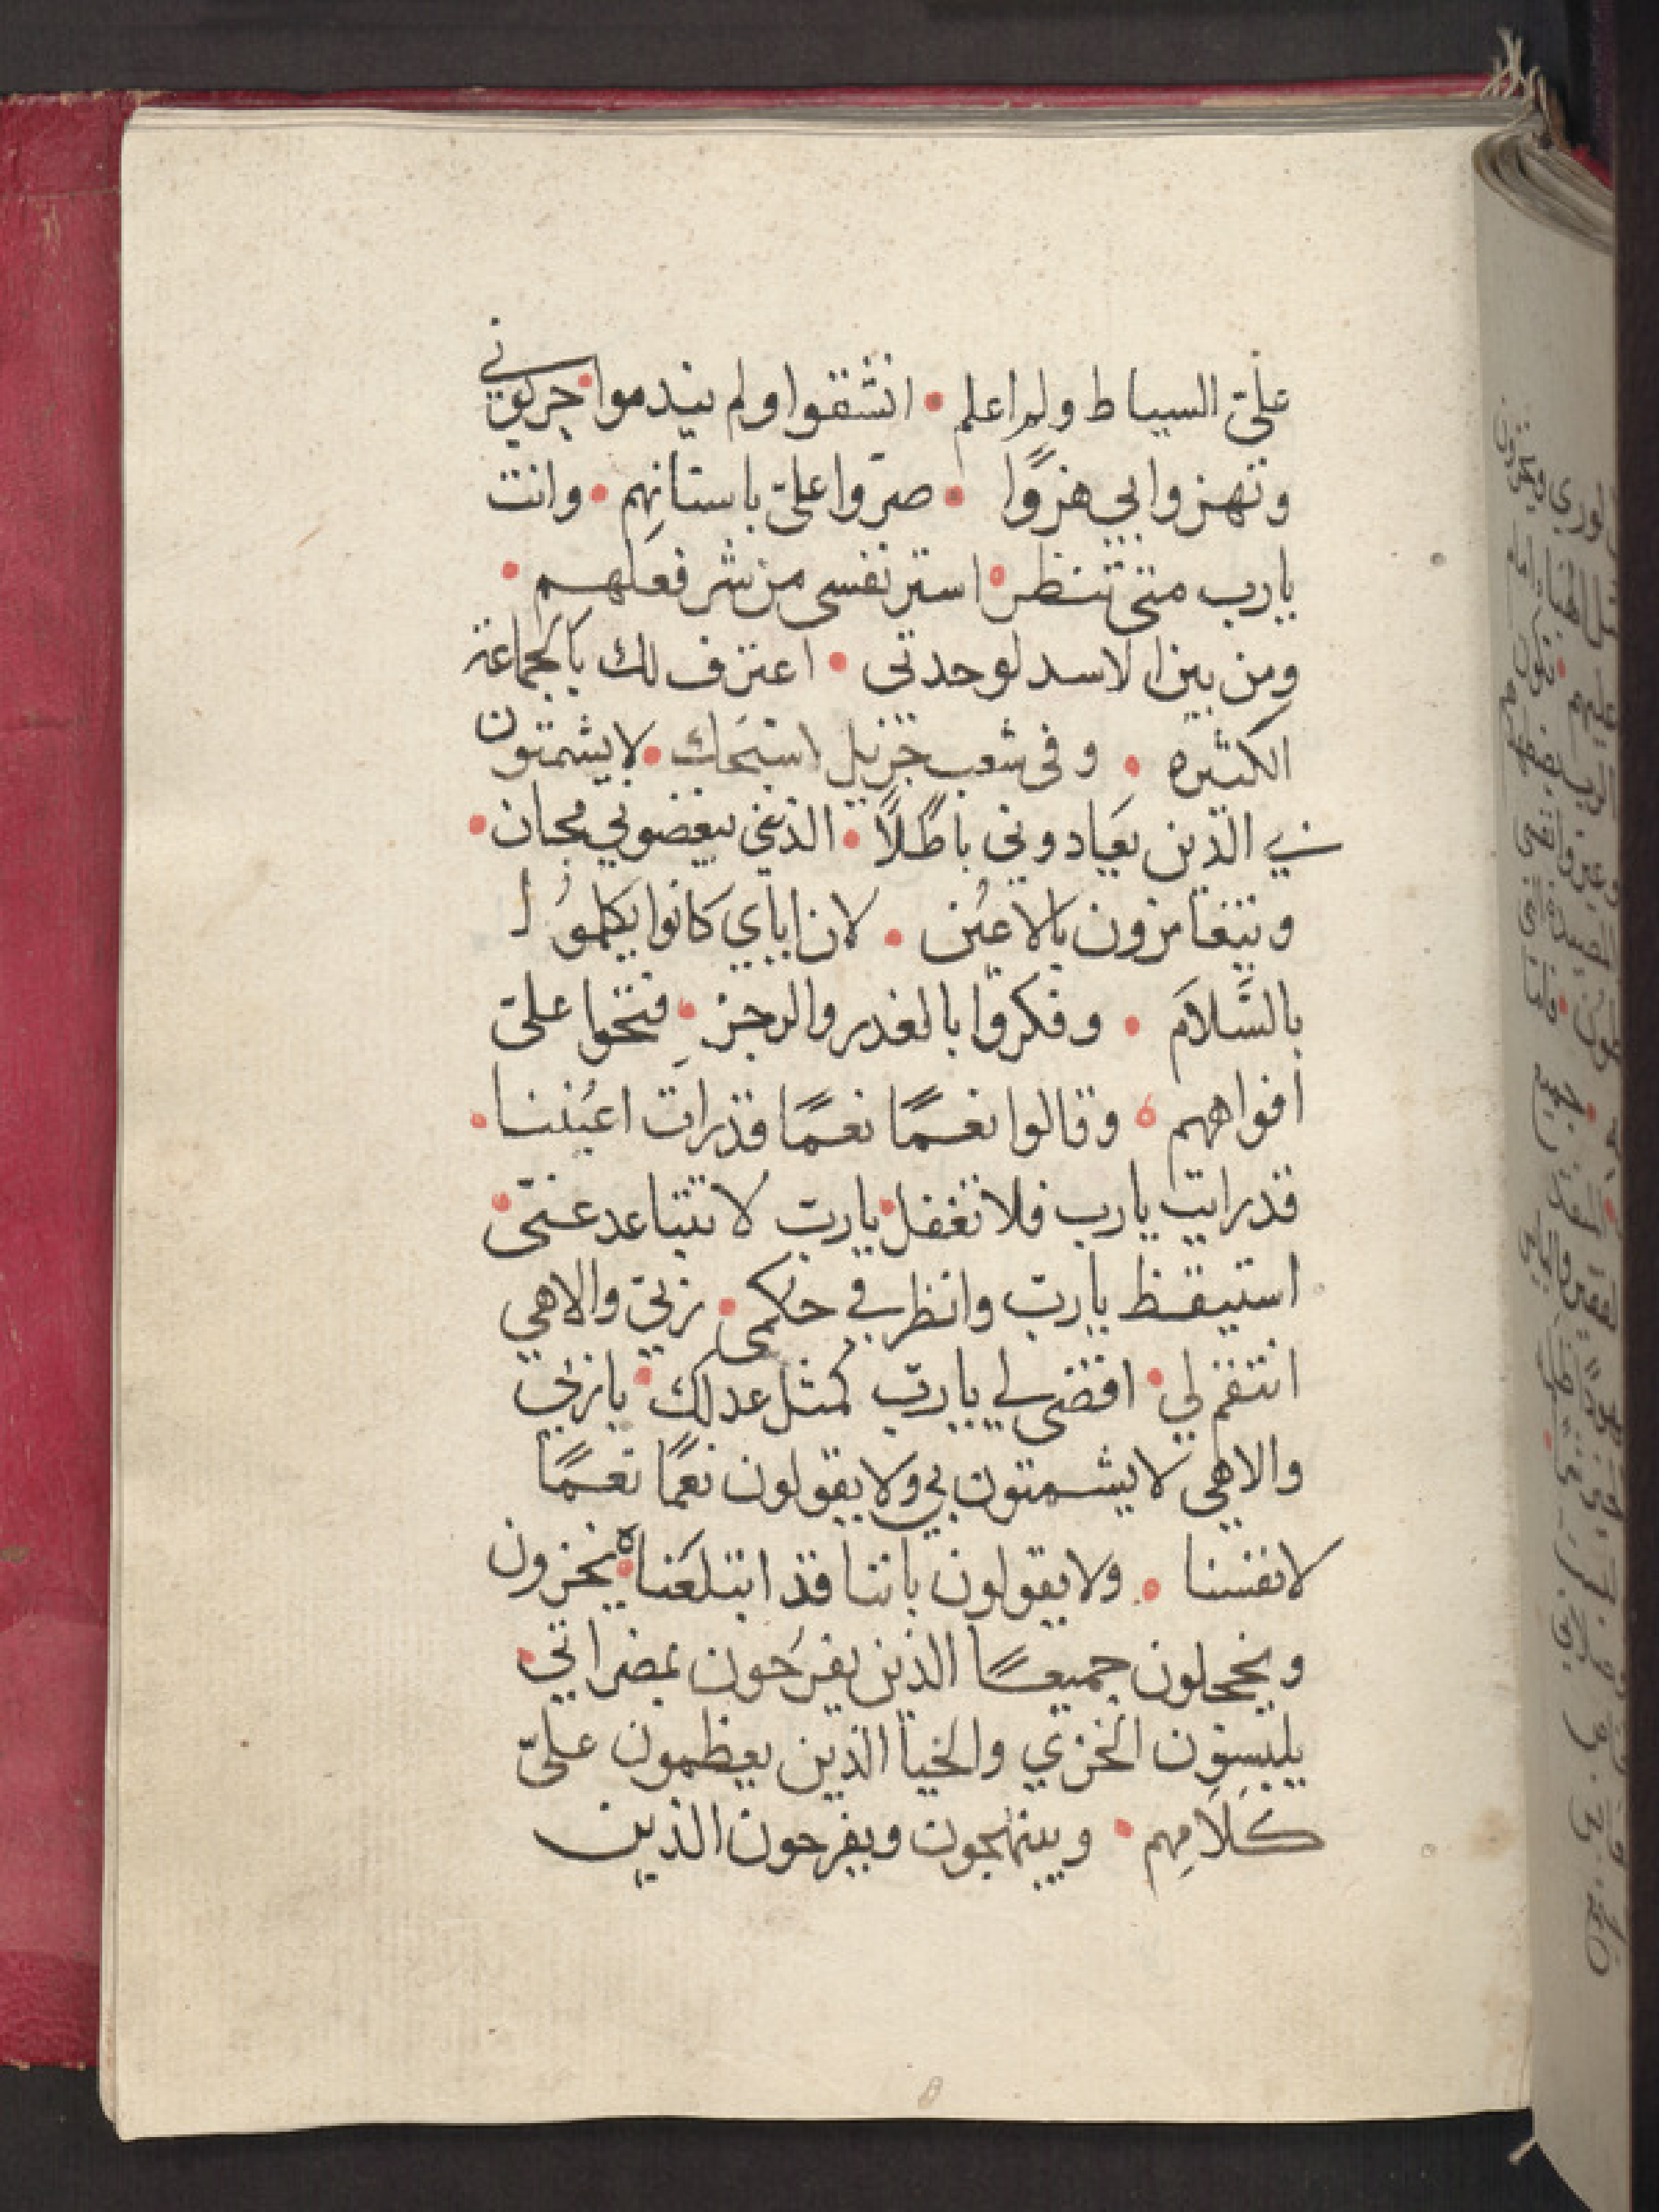 عليّ السياط ولم اعلم • انشقوا ولم يندموا • جربوني
وتهزوا بي هزوًا • صرّوا عليّ باسنانهم • وانت
يا رب متى تنظر • استر نفسي من شر فعلهم •
ومن بين الاسد لوحدتي • اعترف لك بالجماعة
الكثيره • وفي شعب جزيل اسبحك • لا يشمتون
بي الذين يعادوني باطلًا • الذين يبغضوني مجان •
ويتغامزون بالاعين • لان اياي كانوا يكلموا
بالسَّلاَم • وفكروا بالغدر والرجز • فتحوا عليّ
افواههم • وقالوا نعمًا نعمًا قد رات اعيننا •
قد رايت يا رب فلا تغفل • يا ربّ لا تتباعد عنّي •
استيقظ يا ربّ وانظر في حكمي • ربّي والاهي
انتقم لي • اقضي لي يا ربّ كمثل عدلك • يا ربّي
والاهي لا يشمتون بي ولا يقولون نعمًا نعمًا
لانفسنا • ولا يقولون باننا قد ابتلعناه • يخزون
ويخجلون جميعًا الذين يفرحون بمضراتي •
يلبسون الخزي والخيا الذين يعظمون عليّ
كلاَمِهم • ويبتهجون ويفرحون الذين